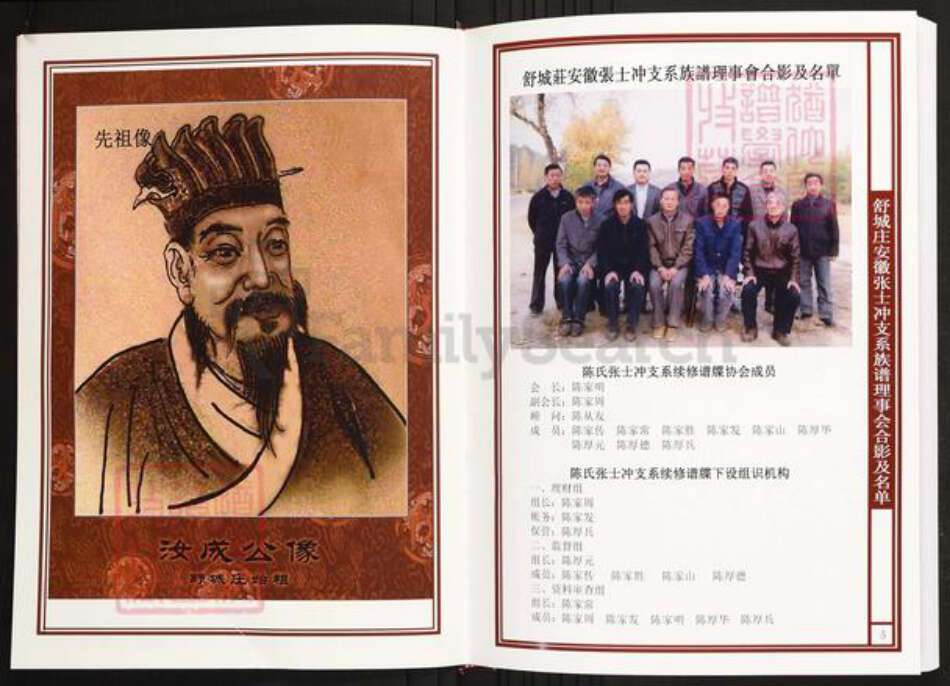 先祖像
汝成公像
舒城庄始祖
舒城莊安徽張士冲支系族譜理事會合影及名單
陈氏张士冲支系续修谱牒协会成员
会 长：陈家明
副会长：陈家周
顾 问：陈从友
成 员：陈家传 陈家常 陈家胜 陈家发 陈家山 陈厚华
陈厚元 陈厚德 陈厚兵
陈氏张士冲支系续修谱牒下设组识机构
一、理财组
组长：陈家周
账务：陈家发
保管：陈厚兵
二、监督组
组长：陈厚元
成员：陈家传 陈家胜 陈家山 陈厚德
三、资料审查组
组长：陈家常
成员：陈家周 陈家发 陈家明 陈厚华 陈厚兵
舒城庄安徽张士冲支系族谱理事会合影及名单
5
FamilySearch